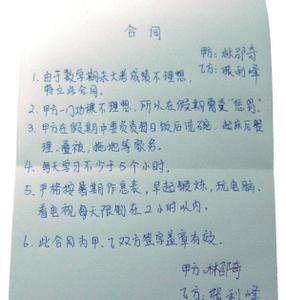 合同
甲方:林邵奇
乙方:张利峰
1.由于数学期末大考成绩不理想,
特立此合同。
2.甲方一门功课不理想,所以在假期需要“惩罚”
3.甲方在假期中要负责每日饭后洗碗,起床后整
理、叠被,拖地等家务。
4.每天学习不少于5个小时。
5.严格按暑期作息表,早起锻炼,玩电脑、
看电视每天限制在2小时以内。
6.此合同为甲、乙双方签字盖章有效。
甲方:林邵奇
乙方:张利峰